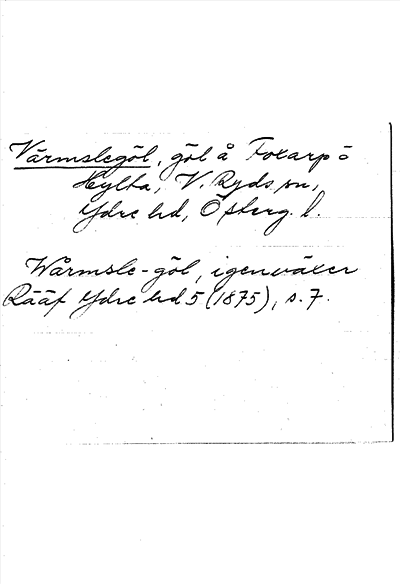 Värmslegöl, göl å Foxarp o
Hylta, V. Ryds sn,
Ydre hd, Österg. l.
Wårmsle-göl, igenväxer
Rääf Ydre hd 5 (1875), s. 7.